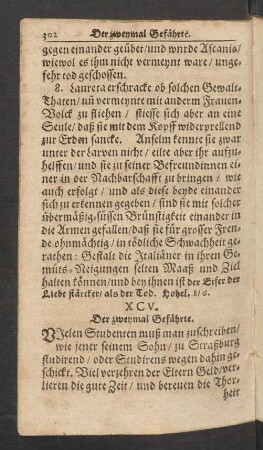 302 Der zweymal Gefährte.
gegen einander geübet/und wurde Ascanis/
wiewol es ihm nicht vermeynt ware/ unge-
fehr tod geschossen.
8. Laureta erschracke ob solchen Gewalt-
Thaten/ uñ vermeynte mit anderm Frauen-
Volck zu fliehen / stiesse sich aber an eine
Seule/ daß sie mit dem Kopff widerprellend
zur Erden sancke. Anselm kennte sie zwar
unter der Larven nicht/ eilte aber ihr aufzu-
helffen/ und sie zu seiner Befreundinnen ei-
ner in der Nachbarschafft zu bringen / wie
auch erfolgt / und als diese beyde einander
sich zu erkennen gegeben/ sind sie mit solcher
übermäßig-süssen Brünstigkeit einander in
die Armen gefallen/daß sie für grosser Freu-
de ohnmächtig / in tödliche Schwachheit ge-
rathen: Gestalt die Italiäner in ihren Ge-
müts-Neigungen selten Maaß und Ziel
halten können/und bey ihnen ist der Eifer der
Liebe stärcker/ als der Tod. Hohel. 8/6.
XCV.
Der zweymal Gefährte.
VIelen Studenten muß man zuschreiben/
wie jener seinem Sohn/ zu Straßburg
studirend / oder Studirens wegen dahin ge-
schickt. Viel verzehren der Eltern Geld/ver-
lieren die gute Zeit/ und bereuen die Thor-
heit